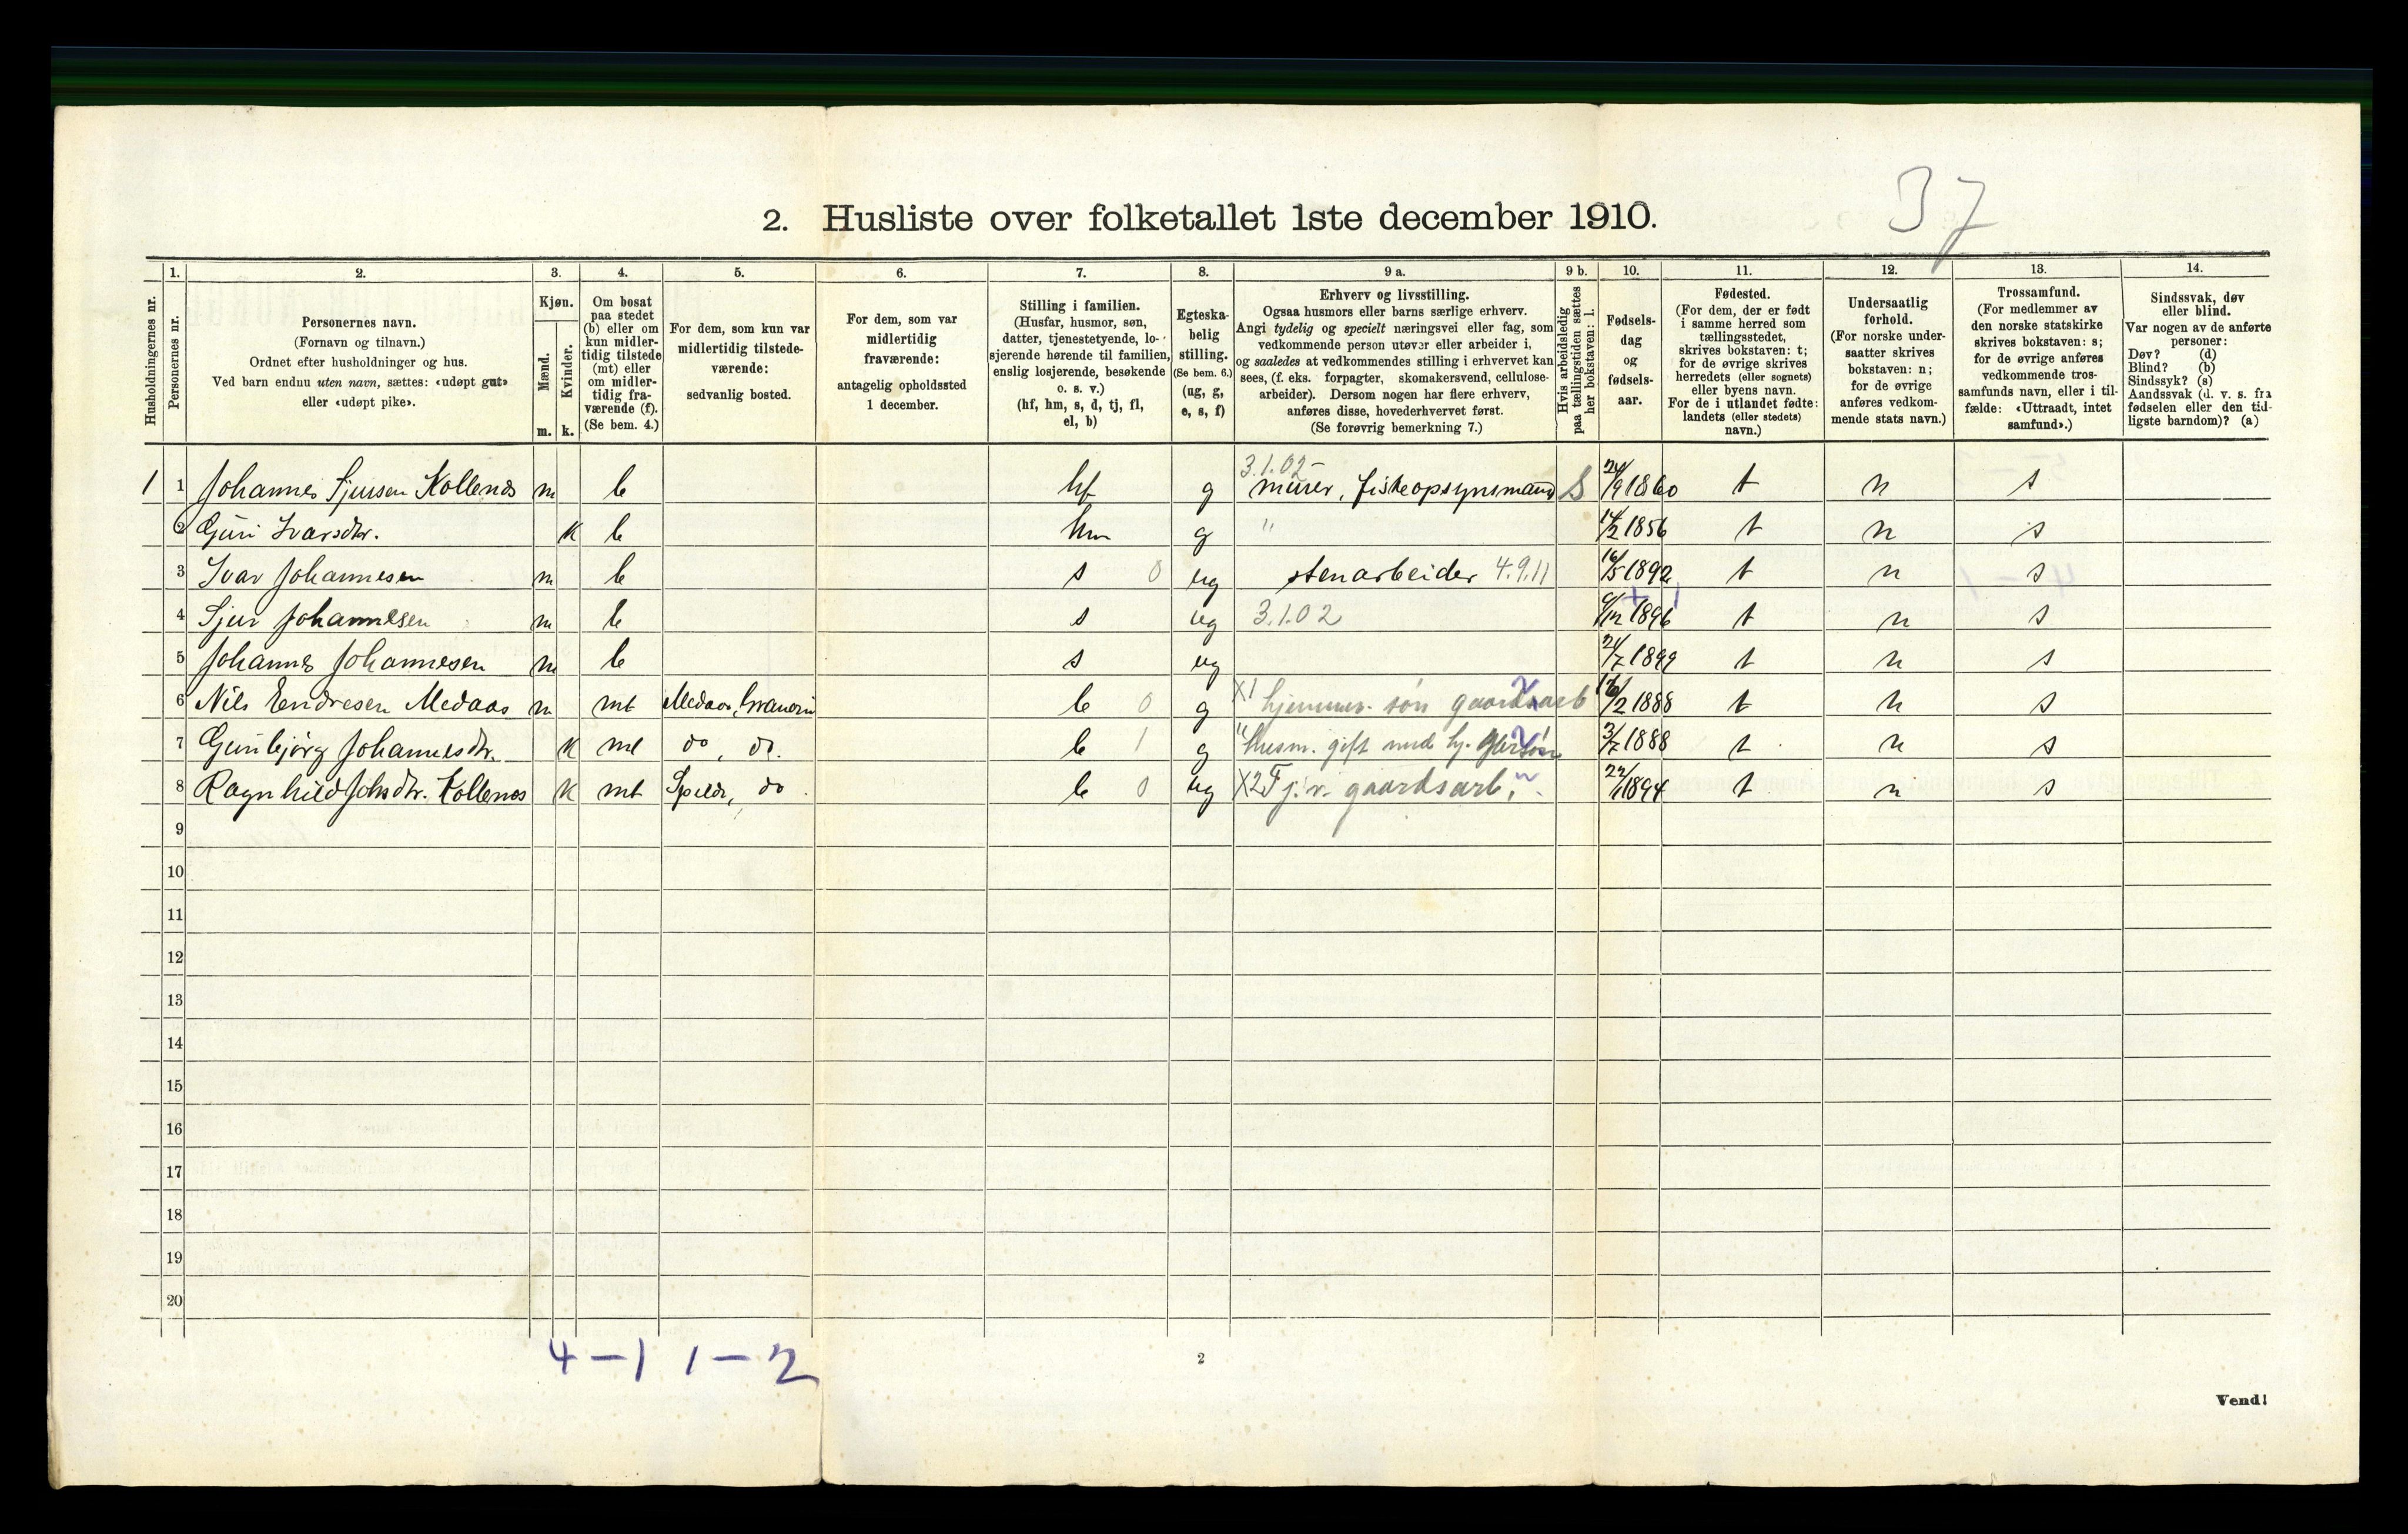 37
2. Husliste over folketallet 1ste december 1910.
Husholdningernes nr.
1.
Personernes nr.
2.
Personernes navn.
(Fornavn og tilnavn.)
Ordnet efter husholdninger og hus.
Ved barn endnu uten navn, sættes: «udøpt gut»
eller «udøpt pike».
3.
Kjøn.
Mænd.
Kvinder.
m. k.
4.
Om bosat
paa stedet
(b) eller om
kun midler-
tidig tilstede
(mt) eller
om midler-
tidig fra-
værende (f).
(Se bem. 4.)
5.
For dem, som kun var
midlertidig tilstede-
værende:
sedvanlig bosted.
6.
For dem, som var
midlertidig
fraværende:
antagelig opholdssted
1 december.
7.
Stilling i familien.
(Husfar, husmor, søn,
datter, tjenestetyende, lo-
sjerende hørende til familien,
enslig losjerende, besøkende
o. s. v.)
(hf, hm, s, d, tj, fl,
el, b)
8.
Egteska-
belig
stilling.
(Se bem. 6.)
(ug, g,
e, s, f)
9 a.
Erhverv og livsstilling.
Ogsaa husmors eller barns særlige erhverv.
Angi tydelig og specielt næringsvei eller fag, som
vedkommende person utøver eller arbeider i,
og saaledes at vedkommendes stilling i erhvervet kan
sees, (f. eks. forpagter, skomakersvend, cellulose-
arbeider). Dersom nogen har flere erhverv,
anføres disse, hovederhvervet først.
(Se forøvrig bemerkning 7.)
9 b.
Hvis arbeidsledig
paa tællingstiden sættes
her bokstaven: l.
10.
Fødsels-
dag
og
fødsels-
aar.
11.
Fødested.
(For dem, der er født
i samme herred som
tællingsstedet,
skrives bokstaven: t;
for de øvrige skrives
herredets (eller sognets)
eller byens navn.
For de i utlandet fødte:
landets (eller stedets)
navn.)
12.
Undersaatlig
forhold.
(For norske under-
saatter skrives
bokstaven: n;
for de øvrige
anføres vedkom-
mende stats navn.)
13.
Trossamfund.
(For medlemmer av
den norske statskirke
skrives bokstaven: s;
for de øvrige anføres
vedkommende tros-
samfunds navn, eller i til-
fælde: «Uttraadt, intet
samfund».)
14.
Sindssvak, døv
eller blind.
Var nogen av de anførte
personer:
Døv? (d)
Blind? (b)
Sindssyk? (s)
Aandssvak (d. v. s. fra
fødselen eller den tid-
ligste barndom)? (a)
3.1.02
1 1 Johannes Sjursen Kollenes m b hf g murer, fiskeopsynsmand S 24/9 1860 t n s
2 Guri Ivarsdtr. k b hm g " 14/2 1856 t n s
3 Ivar Johannesen m b s 0 ug stenarbeider 4.9.11 16/5 1892 t n s
4 Sjur Johannesen m b s ug 3.1.02 9/12 1896 t n s
5 Johannes Johannesen m b s ug 24/7 1899 t n s
6 Nils Endresen Medaas m mt Medaas, b 0 g X1 hjemmev. søn gaardsarb /2 1888 t n s
7 Gunbjørg Johannesdtr. k mt do, do. b 1 g " husm. gift med hj. 3/7 1888 t n s
8 Ragnhild Johsdtr. Kollenes k mt do b 0 ug X2 gaardsarb. 22/1 1894 t n s
9
10
11
12
13
14
15
16
17
18
19
20
4 — 1 1 — 2
2
Vend!